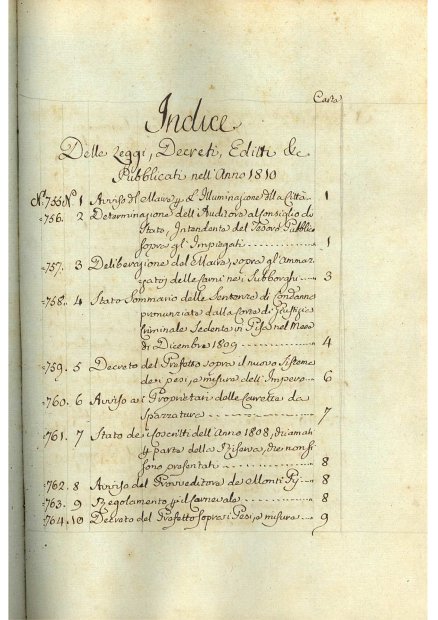 Carta
Indice
Delle Leggi, Decreti, Editti &c
Pubblicati nell'Anno 1810
N.° 755 N.° 1 Avviso del Maire p. l'Illuminazione della Città 1
756. 2 Determinazione dell'Auditore al Consiglio di
Stato, Intendente del Tesoro Pubblico
sopra gl'Impiegati 1
757. 3 Deliberazione del Maire, sopra gl'Ammaz-
zatoj delle Carni nei Subborghi 3
758. 4 Stato Sommario delle Sentenze di Condanna
pronunziate dalla Corte di Giustizia
Criminale Sedente in Pisa nel Mese
di Dicembre 1809 4
759. 5 Decreto del Prefetto sopra il nuovo Sistema
dei pesi, e misure dell'Impero 6
760. 6 Avviso ai Proprietari delle Carrette da
Spazzature 7
761. 7 Stato dei Coscritti dell'Anno 1808, chiamati
p. parte della Riserva, che non si
sono presentati 8
762. 8 Avviso del Provveditore de Monti Pij 8
763. 9 Regolamento p. il Carnevale 8
764. 10 Decreto del Prefetto sopra i Pesi, e misure 9